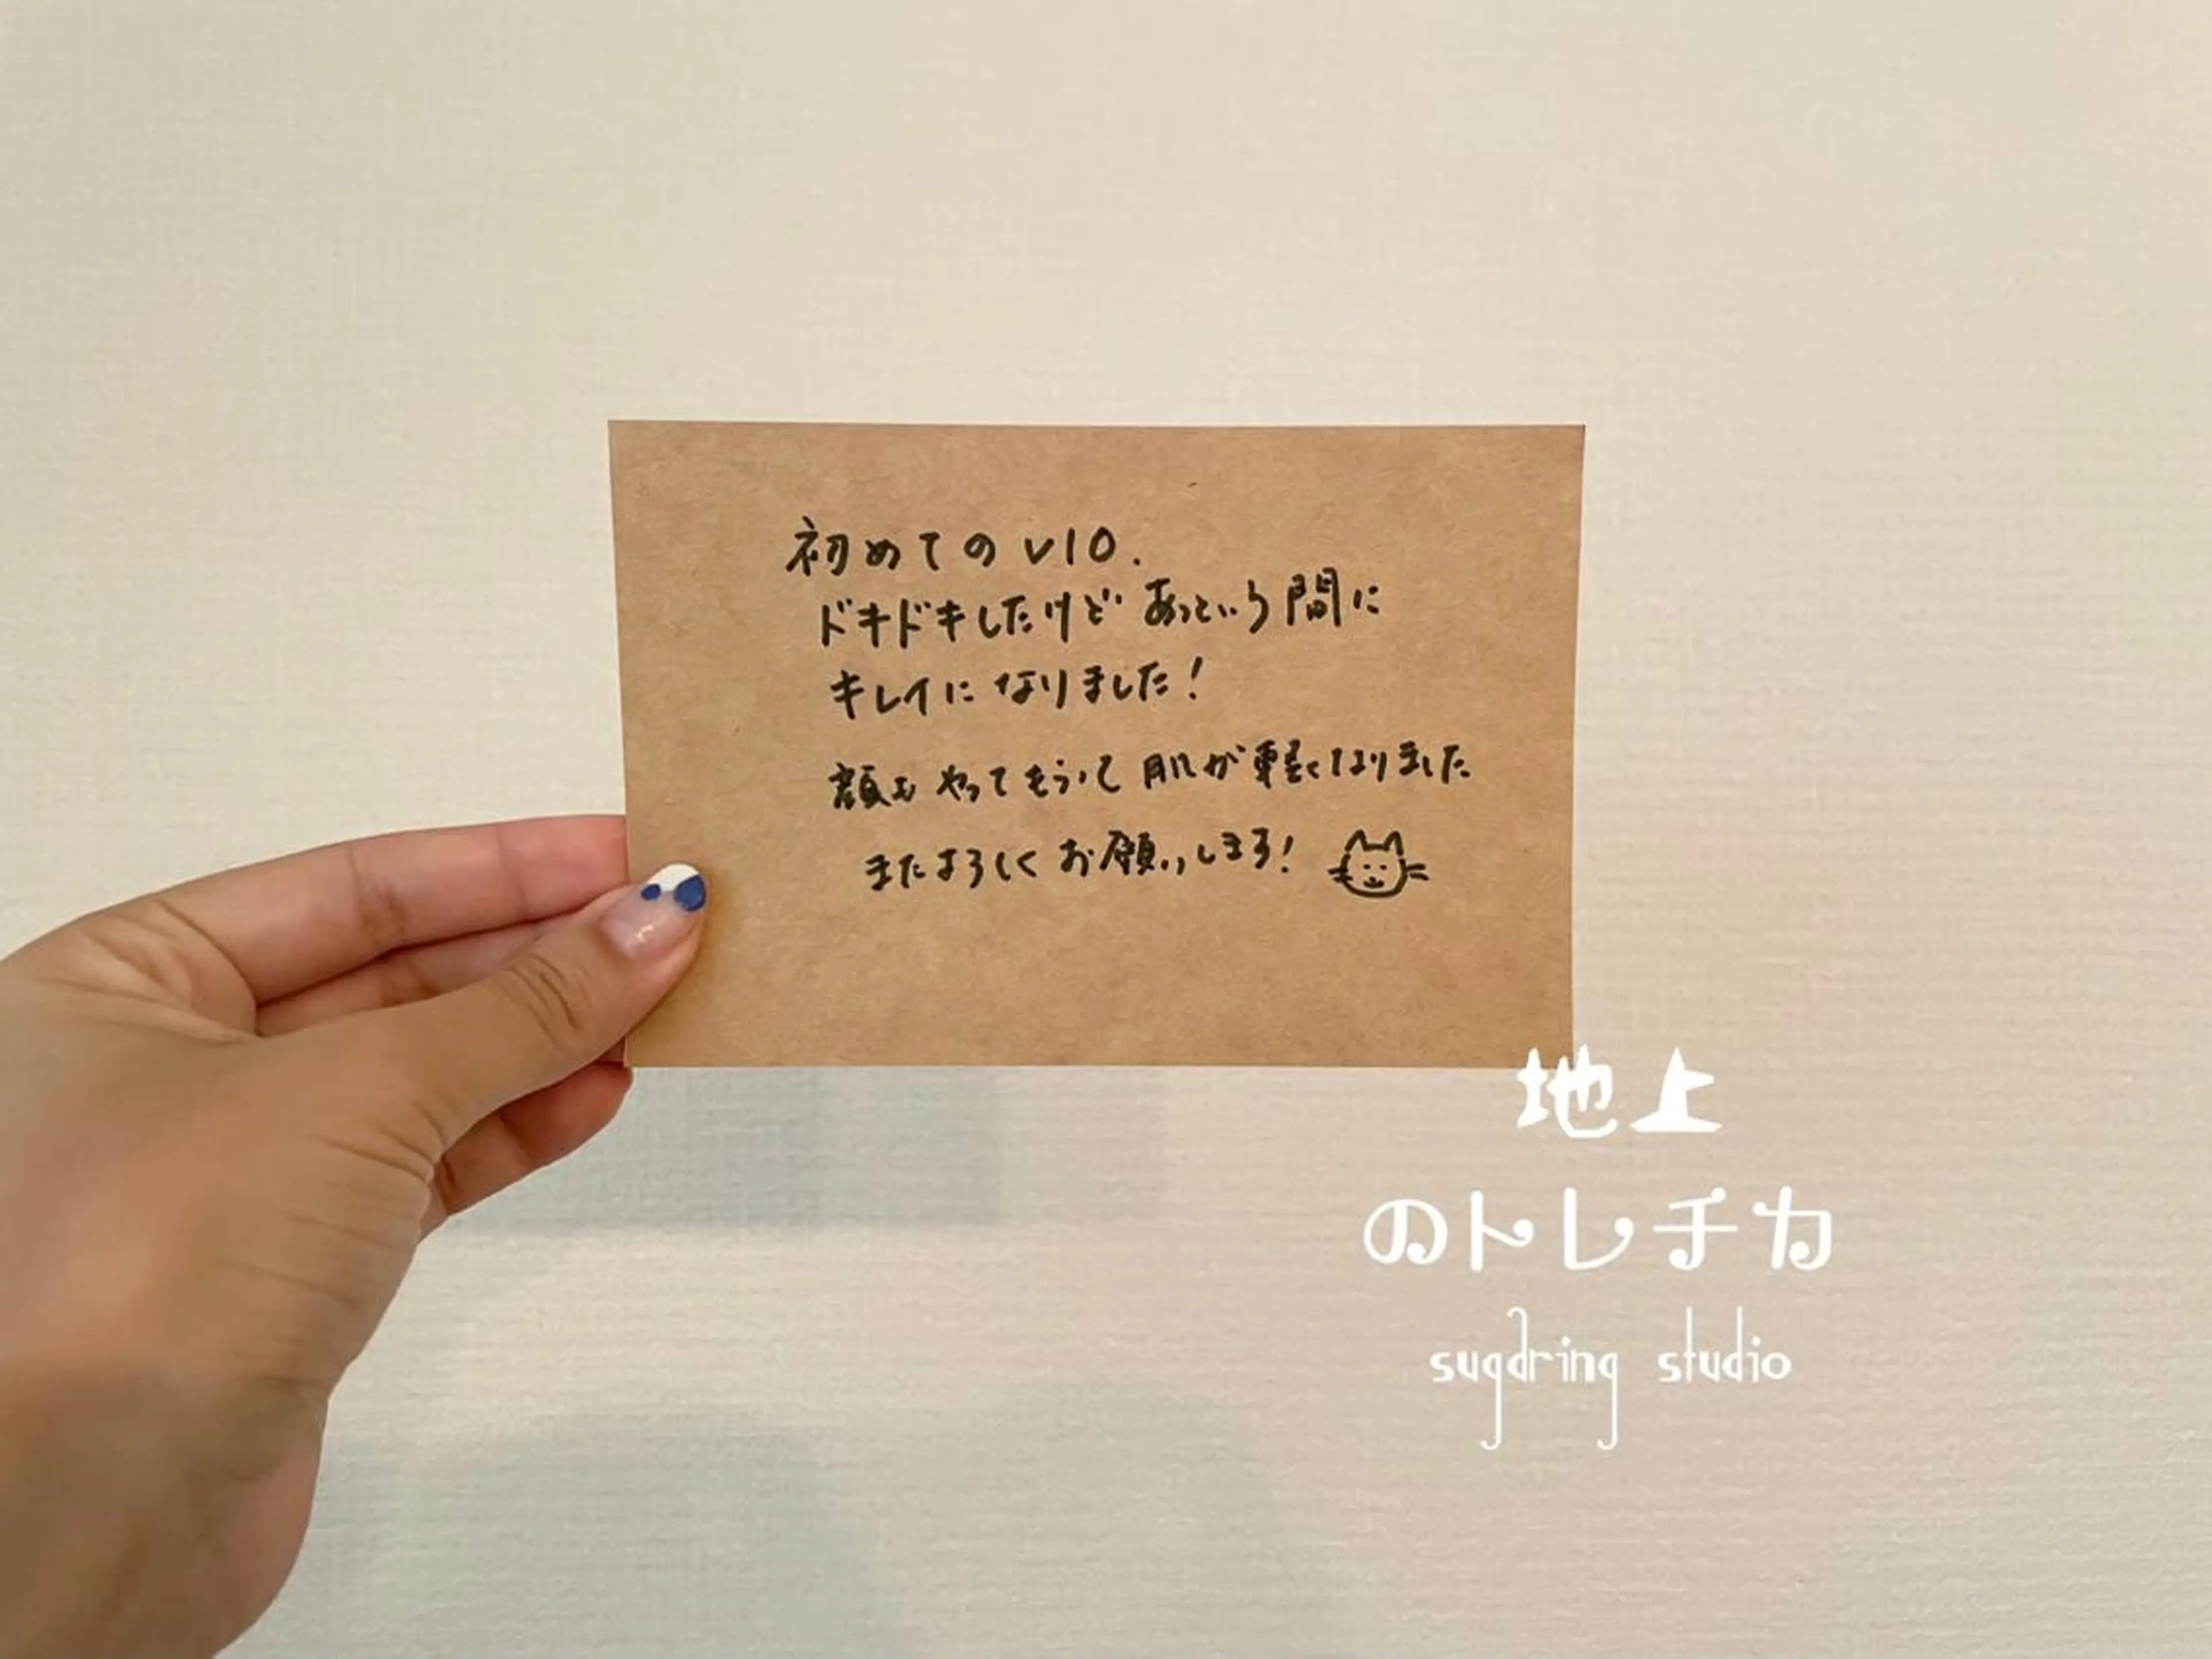 初めてのVIO.
ドキドキしたけど あっという間に
キレイに なりました!
顔も やってもらって 肌が軽くなりました
またよろしく お願いします!
地上
のトレチカ
sugaring studio